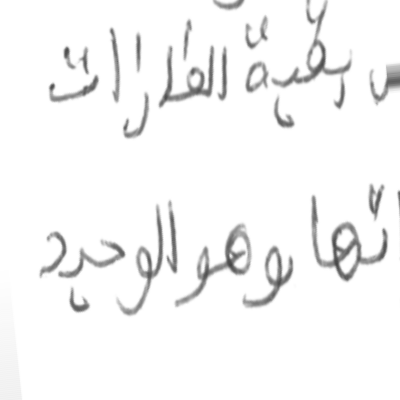 بقية القارات
وهو الوحيد